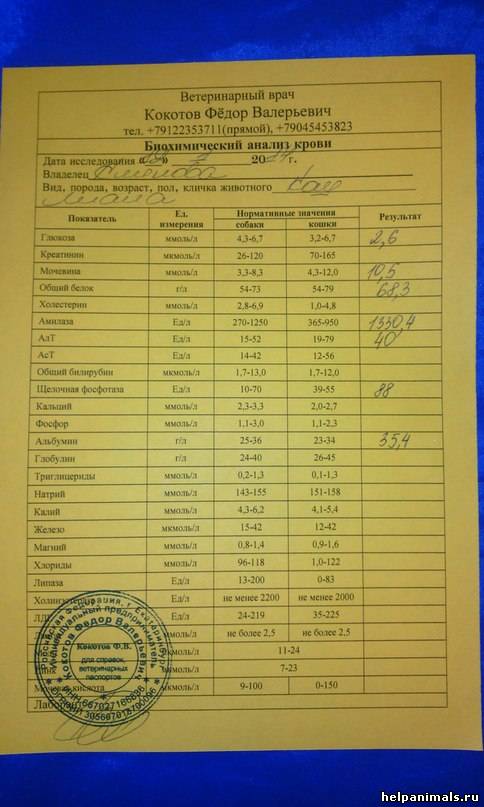 Ветеринарный врач
Кокотов Фёдор Валерьевич
тел. +79122353711(прямой), +79045453823
Биохимический анализ крови
Дата исследования « » 7 20 г.
Владелец
Вид, порода, возраст, пол, кличка животного
Показатель Ед. измерения Нормативные значения собаки кошки Результат
Глюкоза ммоль/л 4,3-6,7 3,2-6,7 2,6
Креатинин мкмоль/л 26-120 70-165
Мочевина ммоль/л 3,3-8,3 4,3-12,0 10,5
Общий белок г/л 54-73 54-79 68,3
Холестерин ммоль/л 2,8-6,9 1,0-4,8
Амилаза Ед/л 270-1250 365-950 1330,4
АлТ Ед/л 15-52 19-79 40
АсТ Ед/л 14-42 12-56
Общий билирубин мкмоль/л 1,7-13,0 1,7-12,0
Щелочная фосфотаза Ед/л 10-70 39-55 88
Кальций ммоль/л 2,3-3,3 2,0-2,7
Фосфор ммоль/л 1,1-3,0 1,1-2,3
Альбумин г/л 25-36 23-34 35,4
Глобулин г/л 24-40 26-45
Триглицериды ммоль/л 0,2-1,3 0,1-1,3
Натрий ммоль/л 143-155 151-158
Калий ммоль/л 4,3-6,2 4,1-5,4
Железо мкмоль/л 15-42 12-42
Магний ммоль/л 0,8-1,4 0,9-1,6
Хлориды ммоль/л 96-118 1,0-122
Липаза Ед/л 13-200 0-83
Ед/л не менее 2200 не менее 2000
Ед/л 24-219 35-225
ммоль/л не более 2,5 не более 2,5
мкмоль/л 11-24
мкмоль/л 7-23
кислота мкмоль/л 9-100 0-150
Российская Федерация, г. Екатеринбург
Индивидуальный предприниматель
Кокотов Федор Валерьевич
Кокотов Ф.В.
для справок,
ветеринарных
паспортов
helpanimals.ru